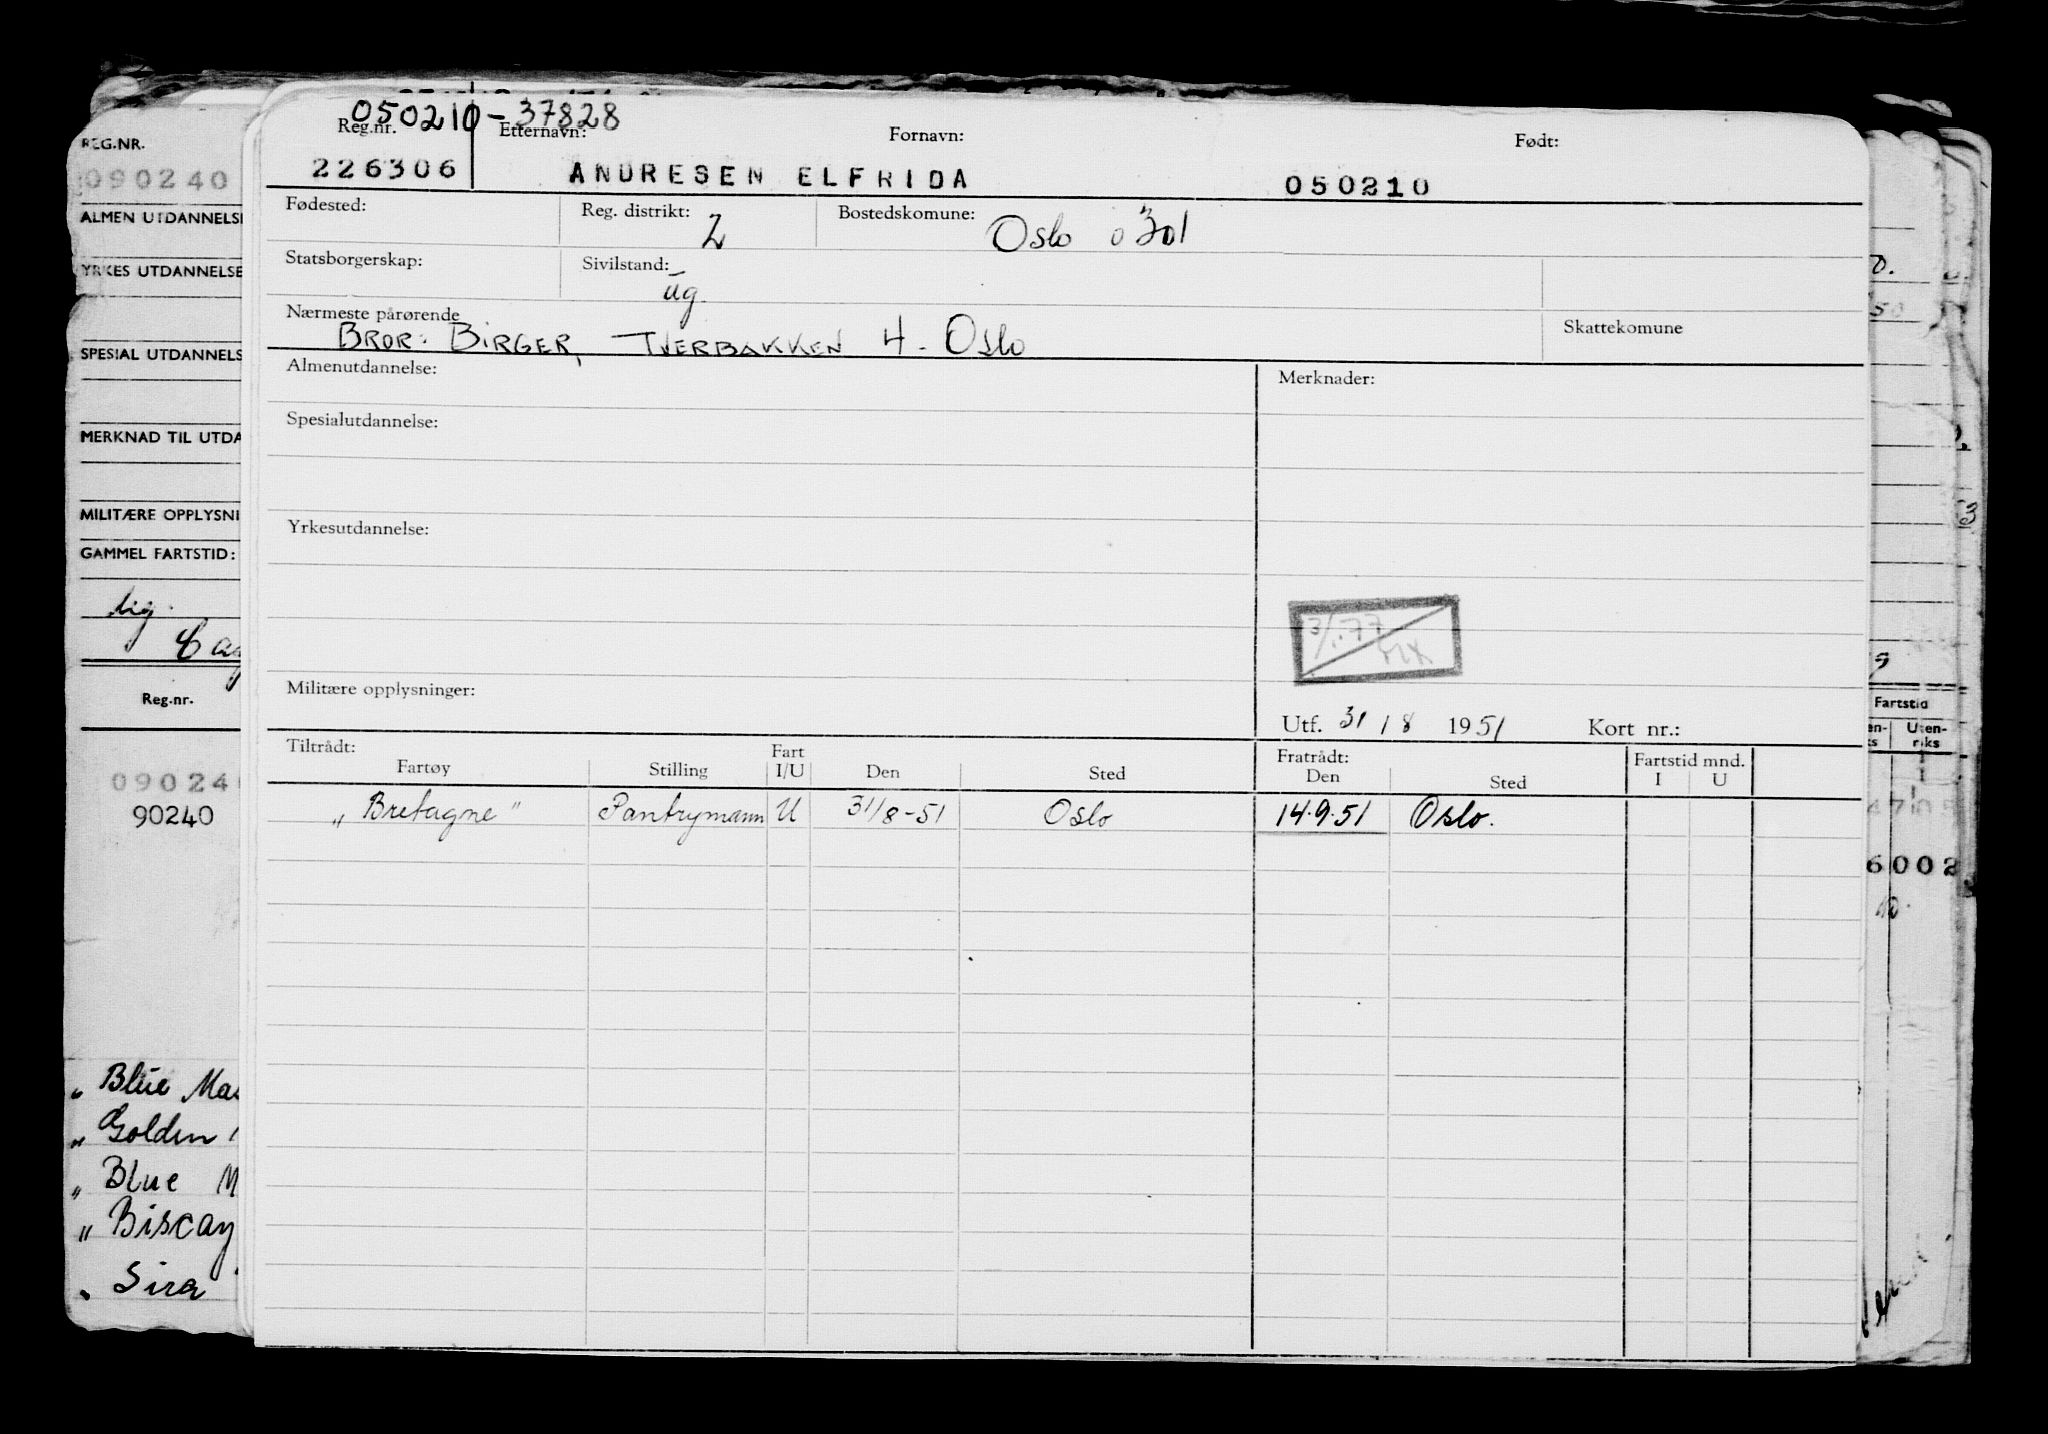 050210-37828
Reg.nr. Etternavn: Fornavn: Født:
226306 ANDRESEN ELFRIDA 050210
Fødested: Reg. distrikt: 2 Bostedskomune: Oslo 0301
Statsborgerskap: Sivilstand: ug.
Nærmeste pårørende Skattekomune
BROR: BIRGER, TVERBAKKEN 4 - Oslo
Almenutdannelse: Merknader:
Spesialutdannelse:
Yrkesutdannelse:
Militære opplysninger:
Utf. 31/8 1951 Kort nr.:
Tiltrådt: Fart Fratrådt: Fartstid mnd.
Fartøy Stilling I/U Den Sted Den Sted I U
„Bretagne" Pantrymann U 31/8-51 Oslo 14.9.51 Oslo.
REG.NR.
090240
ALMEN UTDANNELSE
YRKES UTDANNELSE
SPESIAL UTDANNELS
MERKNAD TIL UTDA
MILITÆRE OPPLYSNI
GAMMEL FARTSTID:
Reg.nr.
09024
90240
„ Blue Mas
„ Golden
„ Blue M
„ Biscay
„ Sira
Fartstid
Uten-
riks
6002